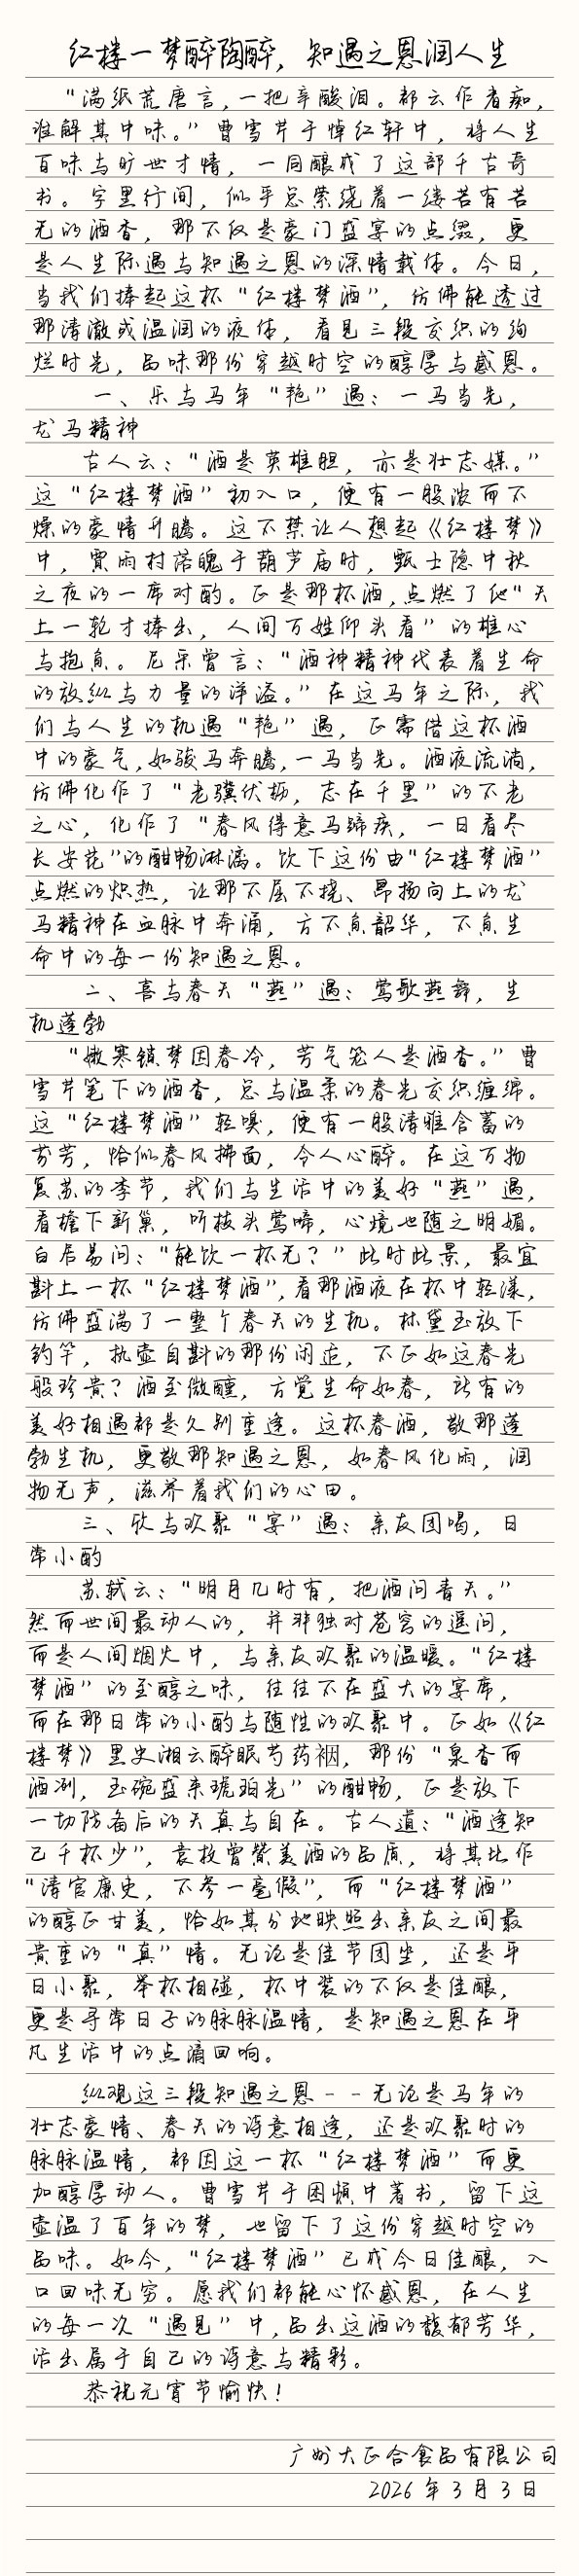 红楼一梦醉陶醉，知遇之恩润人生
“满纸荒唐言，一把辛酸泪。都云作者痴，
谁解其中味。”曹雪芹于悼红轩中，将人生
百味与旷世才情，一同酿成了这部千古奇
书。字里行间，似乎总萦绕着一缕若有若
无的酒香，那不仅是豪门盛宴的点缀，更
是人生际遇与知遇之恩的深情载体。今日，
当我们捧起这杯“红楼梦酒”，仿佛能透过
那清澈或温润的液体，看见三段交织的绚
烂时光，品味那份穿越时空的醇厚与感恩。
一、乐与马年“艳”遇：一马当先，
龙马精神
古人云：“酒是英雄胆，亦是壮志媒。”
这“红楼梦酒”初入口，便有一股浓而不
燥的豪情升腾。这不禁让人想起《红楼梦》
中，贾雨村落魄于葫芦庙时，甄士隐中秋
之夜的一席对酌。正是那杯酒，点燃了他“天
上一轮才捧出，人间万姓仰头看”的雄心
与抱负。尼采曾言：“酒神精神代表着生命
的放纵与力量的洋溢。”在这马年之际，我
们与人生的机遇“艳”遇，正需借这杯酒
中的豪气，如骏马奔腾，一马当先。酒液流淌，
仿佛化作了“老骥伏枥，志在千里”的不老
之心，化作了“春风得意马蹄疾，一日看尽
长安花”的酣畅淋漓。饮下这份由“红楼梦酒”
点燃的炽热，让那不屈不挠、昂扬向上的龙
马精神在血脉中奔涌，方不负韶华，不负生
命中的每一份知遇之恩。
二、喜与春天“燕”遇：莺歌燕舞，生
机蓬勃
“嫩寒锁梦因春冷，芳气笼人是酒香。”曹
雪芹笔下的酒香，总与温柔的春光交织缠绵。
这“红楼梦酒”轻嗅，便有一股清雅含蓄的
芬芳，恰似春风拂面，令人心醉。在这万物
复苏的季节，我们与生活中的美好“燕”遇，
看檐下新巢，听枝头莺啼，心境也随之明媚。
白居易问：“能饮一杯无？”此时此景，最宜
斟上一杯“红楼梦酒”，看那酒液在杯中轻漾，
仿佛盛满了一整个春天的生机。林黛玉放下
钓竿，执壶自斟的那份闲适，不正如这春光
般珍贵？酒至微醺，方觉生命如春，所有的
美好相遇都是久别重逢。这杯春酒，敬那蓬
勃生机，更敬那知遇之恩，如春风化雨，润
物无声，滋养着我们的心田。
三、欣与欢聚“宴”遇：亲友团喝，日
常小酌
苏轼云：“明月几时有，把酒问青天。”
然而世间最动人的，并非独对苍穹的遥问，
而是人间烟火中，与亲友欢聚的温暖。“红楼
梦酒”的至醇之味，往往不在盛大的宴席，
而在那日常的小酌与随性的欢聚中。正如《红
楼梦》里史湘云醉眠芍药裀，那份“泉香而
酒冽，玉碗盛来琥珀光”的酣畅，正是放下
一切防备后的天真与自在。古人道：“酒逢知
己千杯少”，袁枚曾赞美酒的品质，将其比作
“清官廉吏，不参一毫假”，而“红楼梦酒”
的醇正甘美，恰如其分地映照出亲友之间最
贵重的“真”情。无论是佳节团坐，还是平
日小聚，举杯相碰，杯中装的不仅是佳酿，
更是寻常日子的脉脉温情，是知遇之恩在平
凡生活中的点滴回响。
纵观这三段知遇之恩--无论是马年的
壮志豪情、春天的诗意相逢，还是欢聚时的
脉脉温情，都因这一杯“红楼梦酒”而更
加醇厚动人。曹雪芹于困顿中著书，留下这
壶温了百年的梦，也留下了这份穿越时空的
品味。如今，“红楼梦酒”已成今日佳酿，入
口回味无穷。愿我们都能心怀感恩，在人生
的每一次“遇见”中，品出这酒的馥郁芳华，
活出属于自己的诗意与精彩。
恭祝元宵节愉快！
广州大正合食品有限公司
2026年3月3日